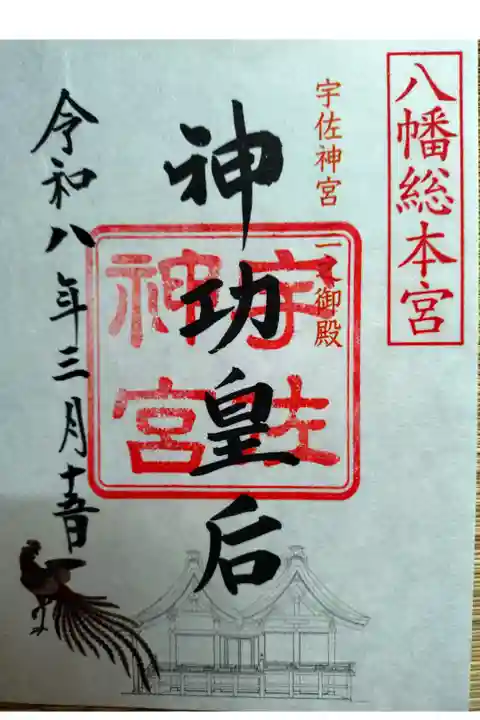 八幡総本宮
宇佐神宮 御殿
神功皇后
宇佐
神宮
令和八年三月十五日